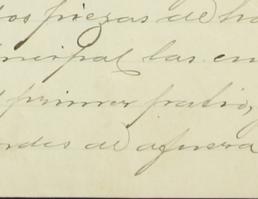 los piezas de ha
incipal las en
primer patio,
ordes de afuera